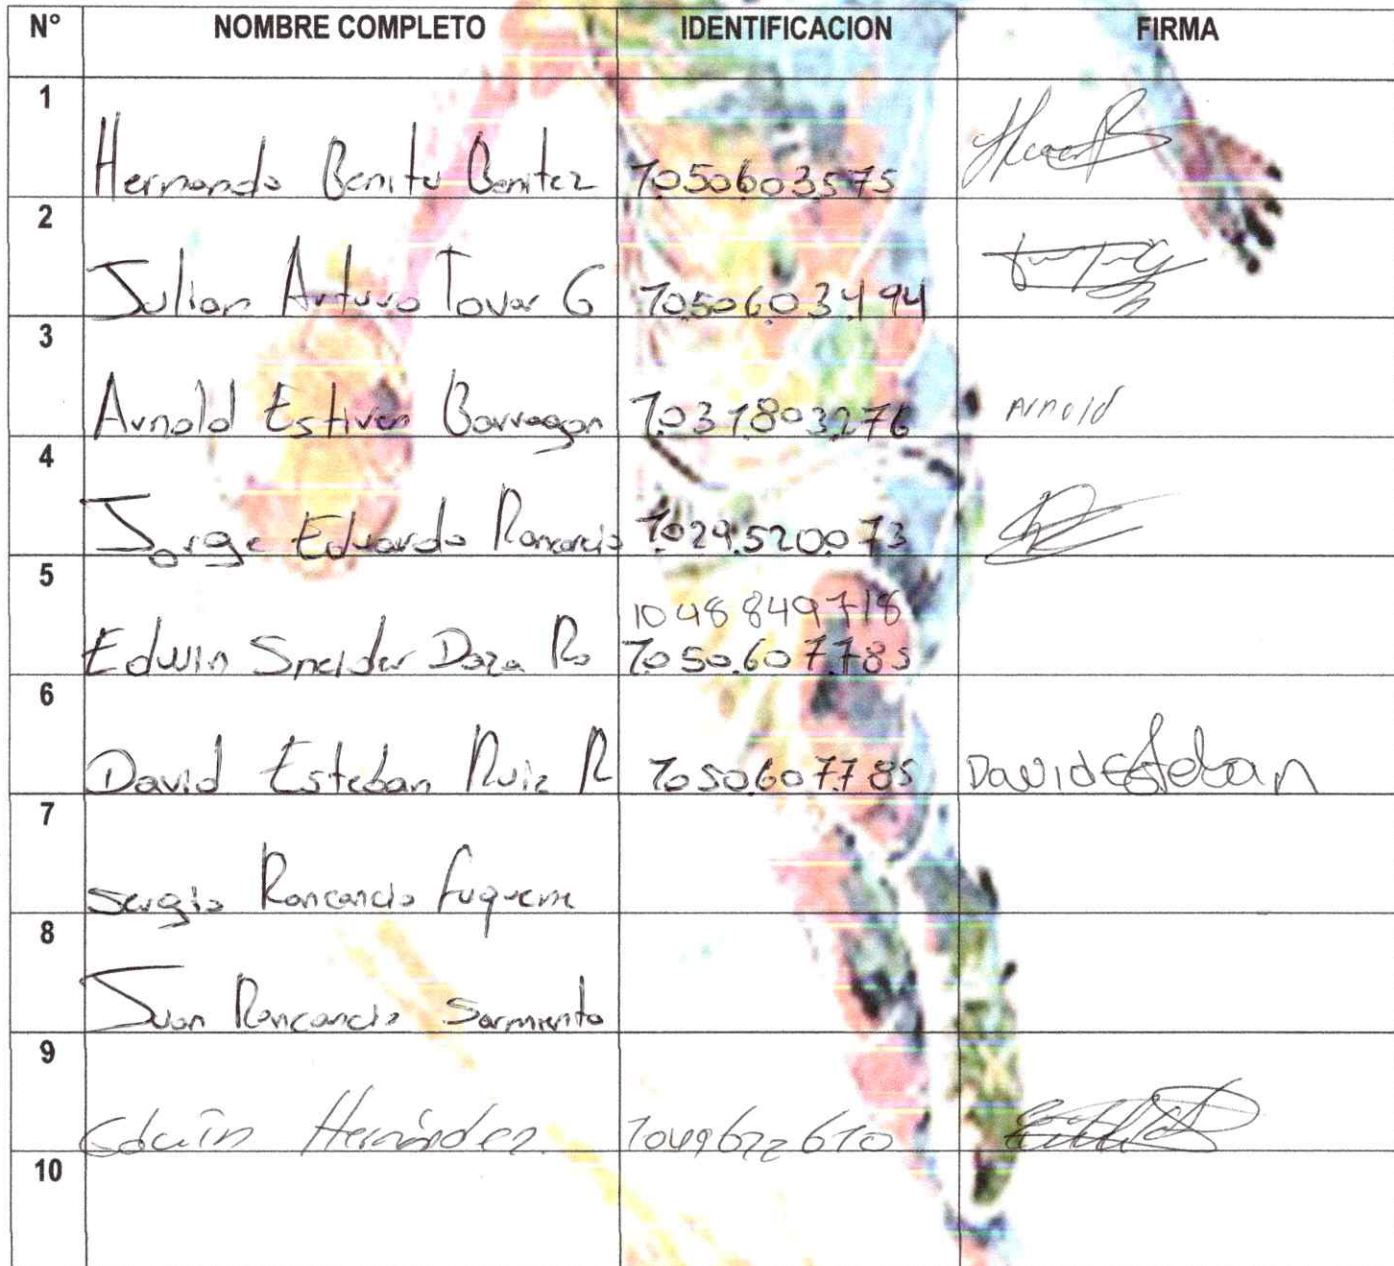 N° NOMBRE COMPLETO IDENTIFICACION FIRMA
1
Hernando Benito Benitez 1050603575
2
Julian Arturo Tovar G 1050603494
3
Arnold Estiven Barragan 1031803276 Arnold
4
Jorge Eduardo Roncancio 1029520073
5
1048849718
Edwin Sneider Daza Ro 1050.607.785
6
David Esteban Ruiz R 1050607785 David Esteban
7
Sergio Roncancio Fuqueme
8
Juan Roncancio Sarmiento
9
Edwin Hernández 1049622610
10